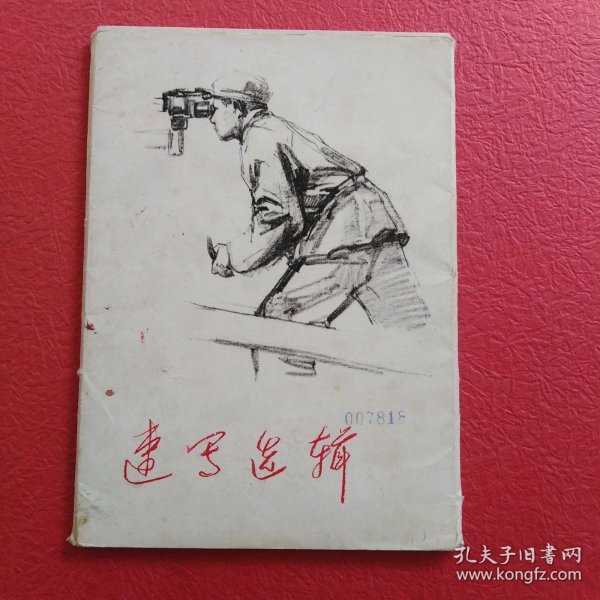 007818
速写选辑
孔夫子旧书网
www.kongfz.com